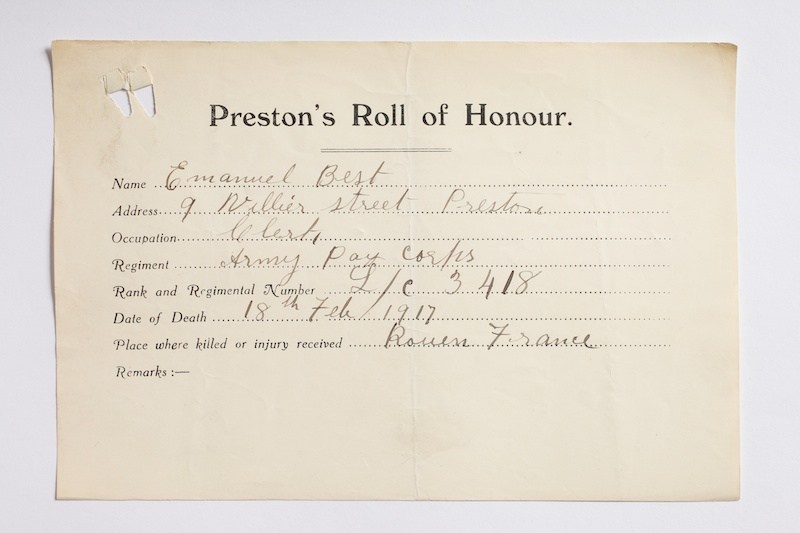 Preston's Roll of Honour.
Name Emanuel Best
Address 9 street Preston
Occupation Clerk
Regiment Army Pay Corps
Rank and Regimental Number L/c 3418
Date of Death 18th Feb / 1917
Place where killed or injury received Rouen France
Remarks :—